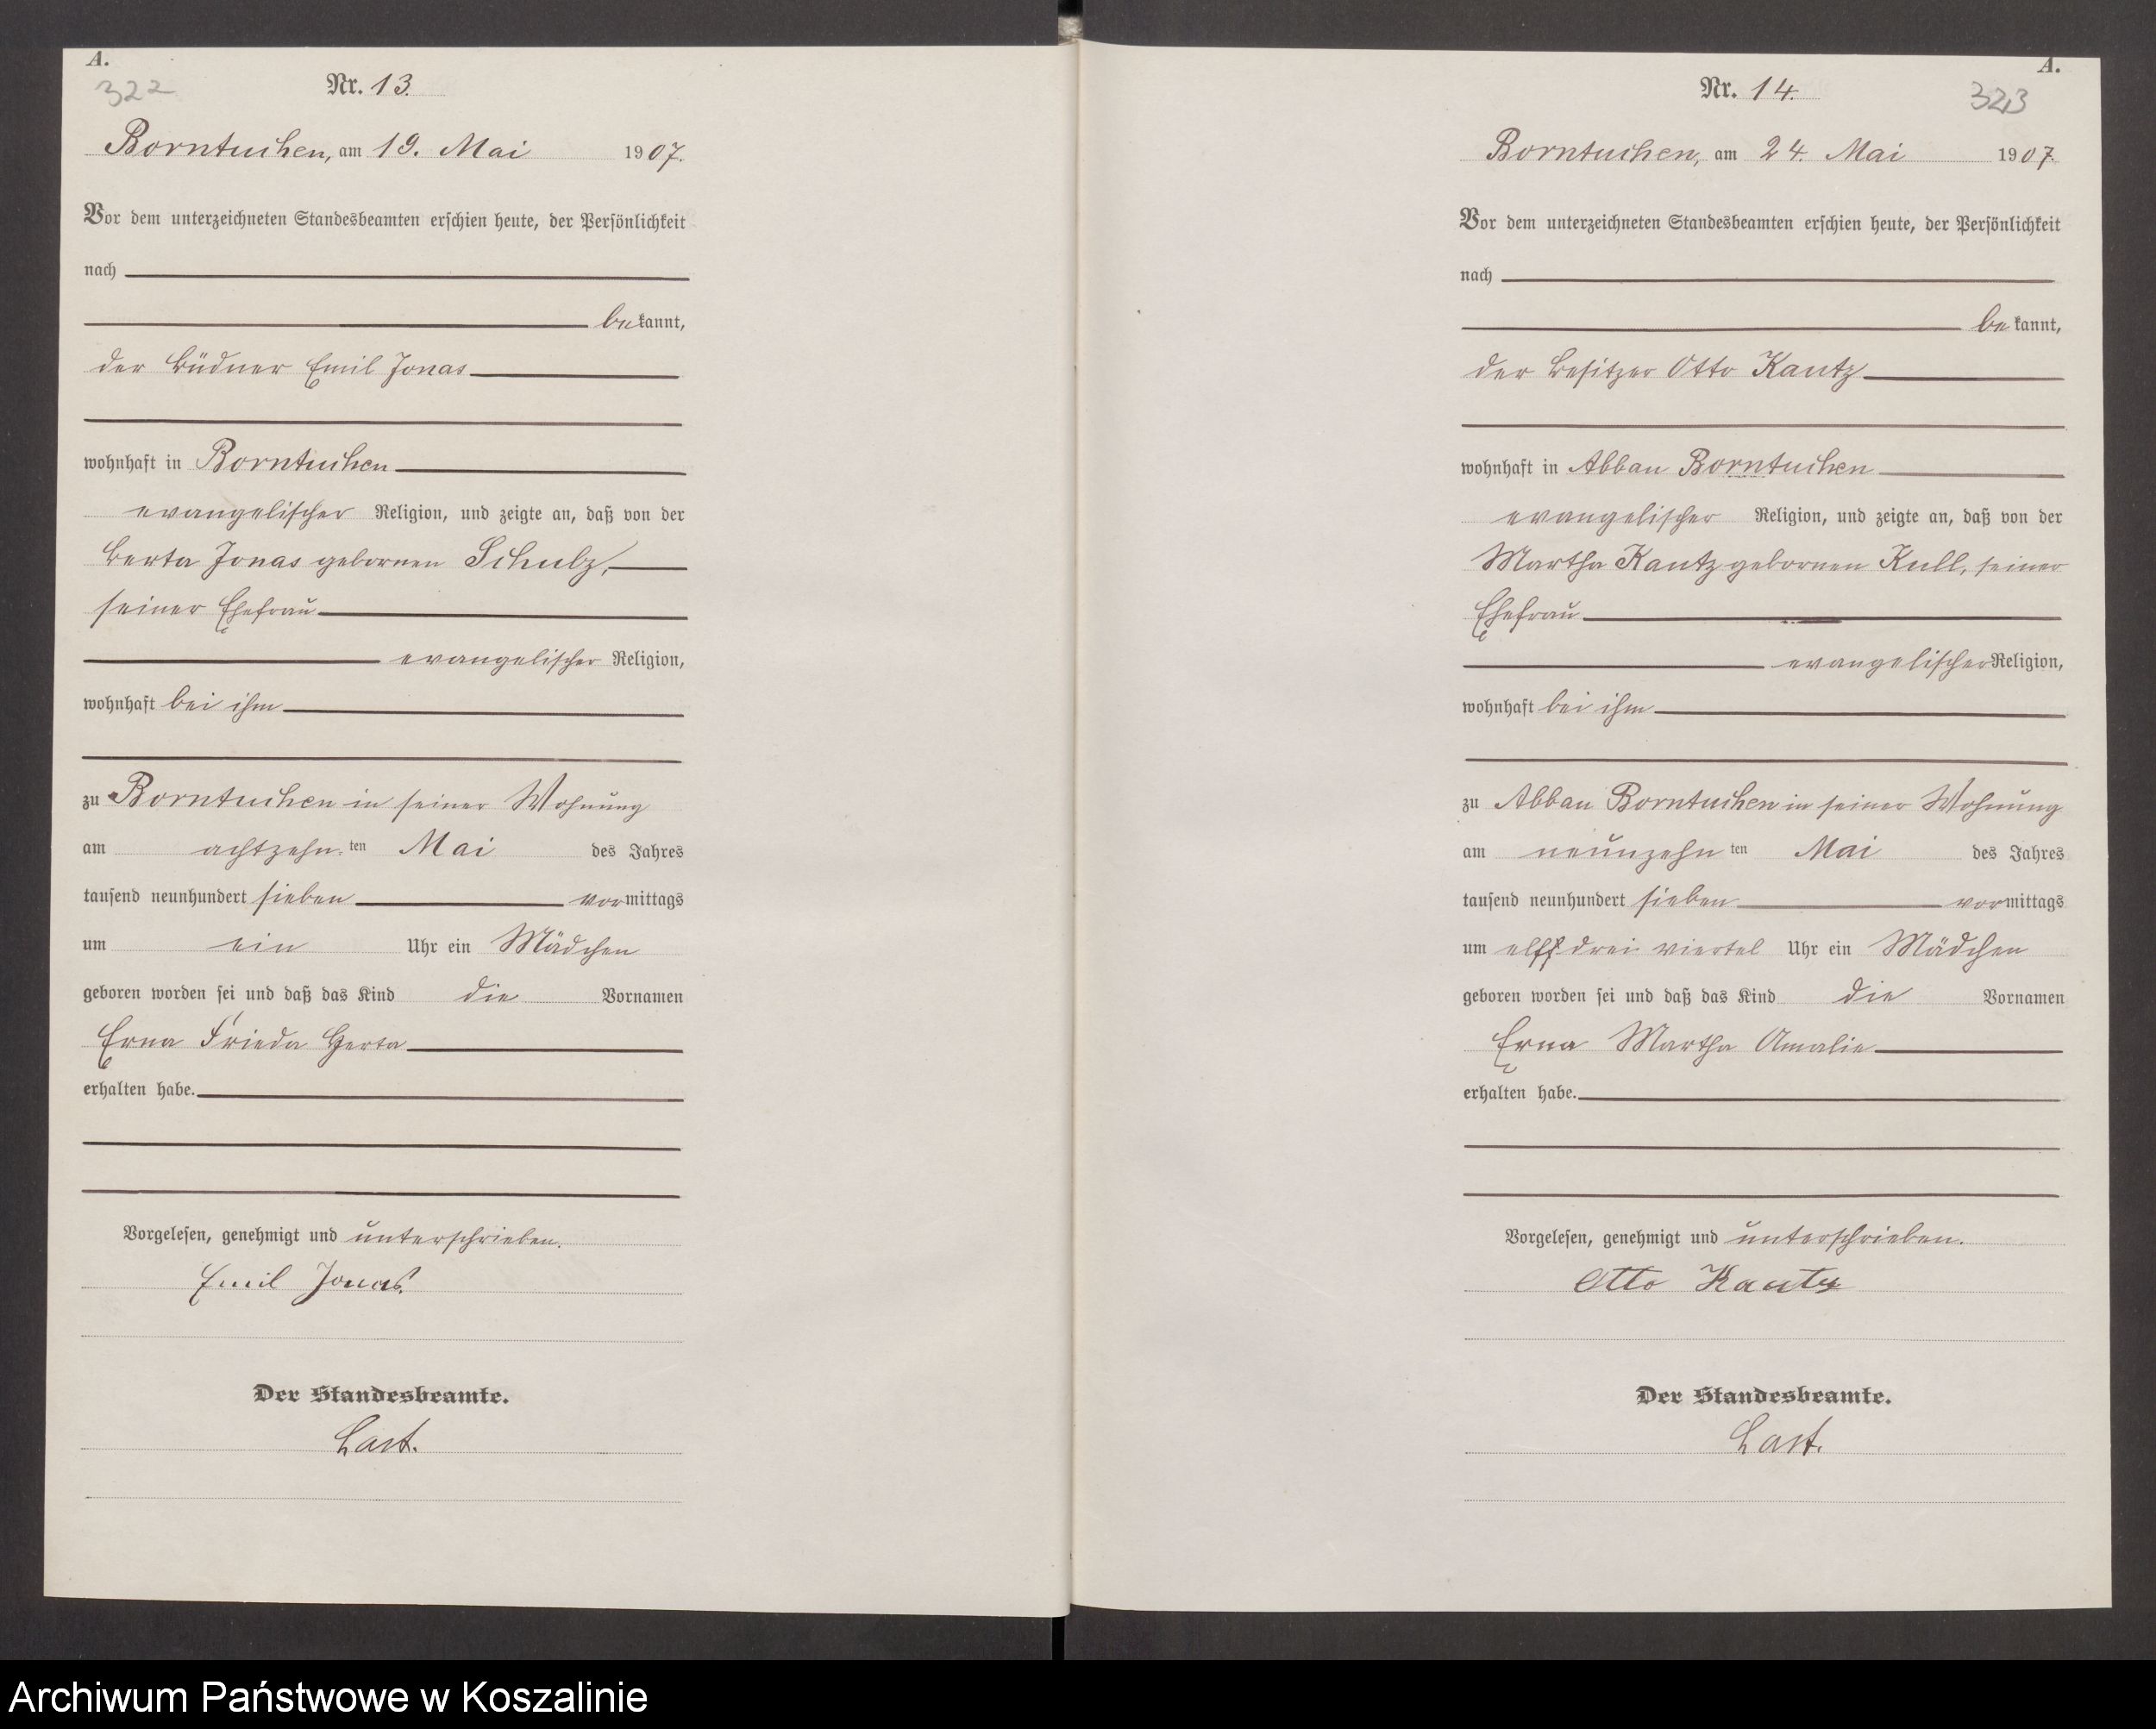 A.
322
Nr. 13.
Borntuchen, am 19. Mai 1907.
Vor dem unterzeichneten Standesbeamten erschien heute, der Persönlichkeit
nach
bekannt,
der Büdner Emil Jonas
wohnhaft in Borntuchen
evangelischer Religion, und zeigte an, daß von der
Berta Jonas gebornen Schulz,
seiner Ehefrau
evangelischer Religion,
wohnhaft bei ihm
zu Borntuchen in seiner Wohnung
am achtzehn ten Mai des Jahres
tausend neunhundert sieben vormittags
um ein Uhr ein Mädchen
geboren worden sei und daß das Kind die Vornamen
Erna Frieda Herta
erhalten habe.
Vorgelesen, genehmigt und unterschrieben.
Emil Jonas.
Der Standesbeamte.
Last.
A.
323
Nr. 14.
Borntuchen, am 24. Mai 1907.
Vor dem unterzeichneten Standesbeamten erschien heute, der Persönlichkeit
nach
bekannt,
der Besitzer Otto Kautz
wohnhaft in Abbau Borntuchen
evangelischer Religion, und zeigte an, daß von der
Martha Kautz gebornen Kull, seiner
Ehefrau
evangelischer Religion,
wohnhaft bei ihm
zu Abbau Borntuchen in seiner Wohnung
am neunzehn ten Mai des Jahres
tausend neunhundert sieben vormittags
um elf drei viertel Uhr ein Mädchen
geboren worden sei und daß das Kind die Vornamen
Erna Martha Amalie
erhalten habe.
Vorgelesen, genehmigt und unterschrieben.
Otto Kautz
Der Standesbeamte.
Last.
Archiwum Państwowe w Koszalinie